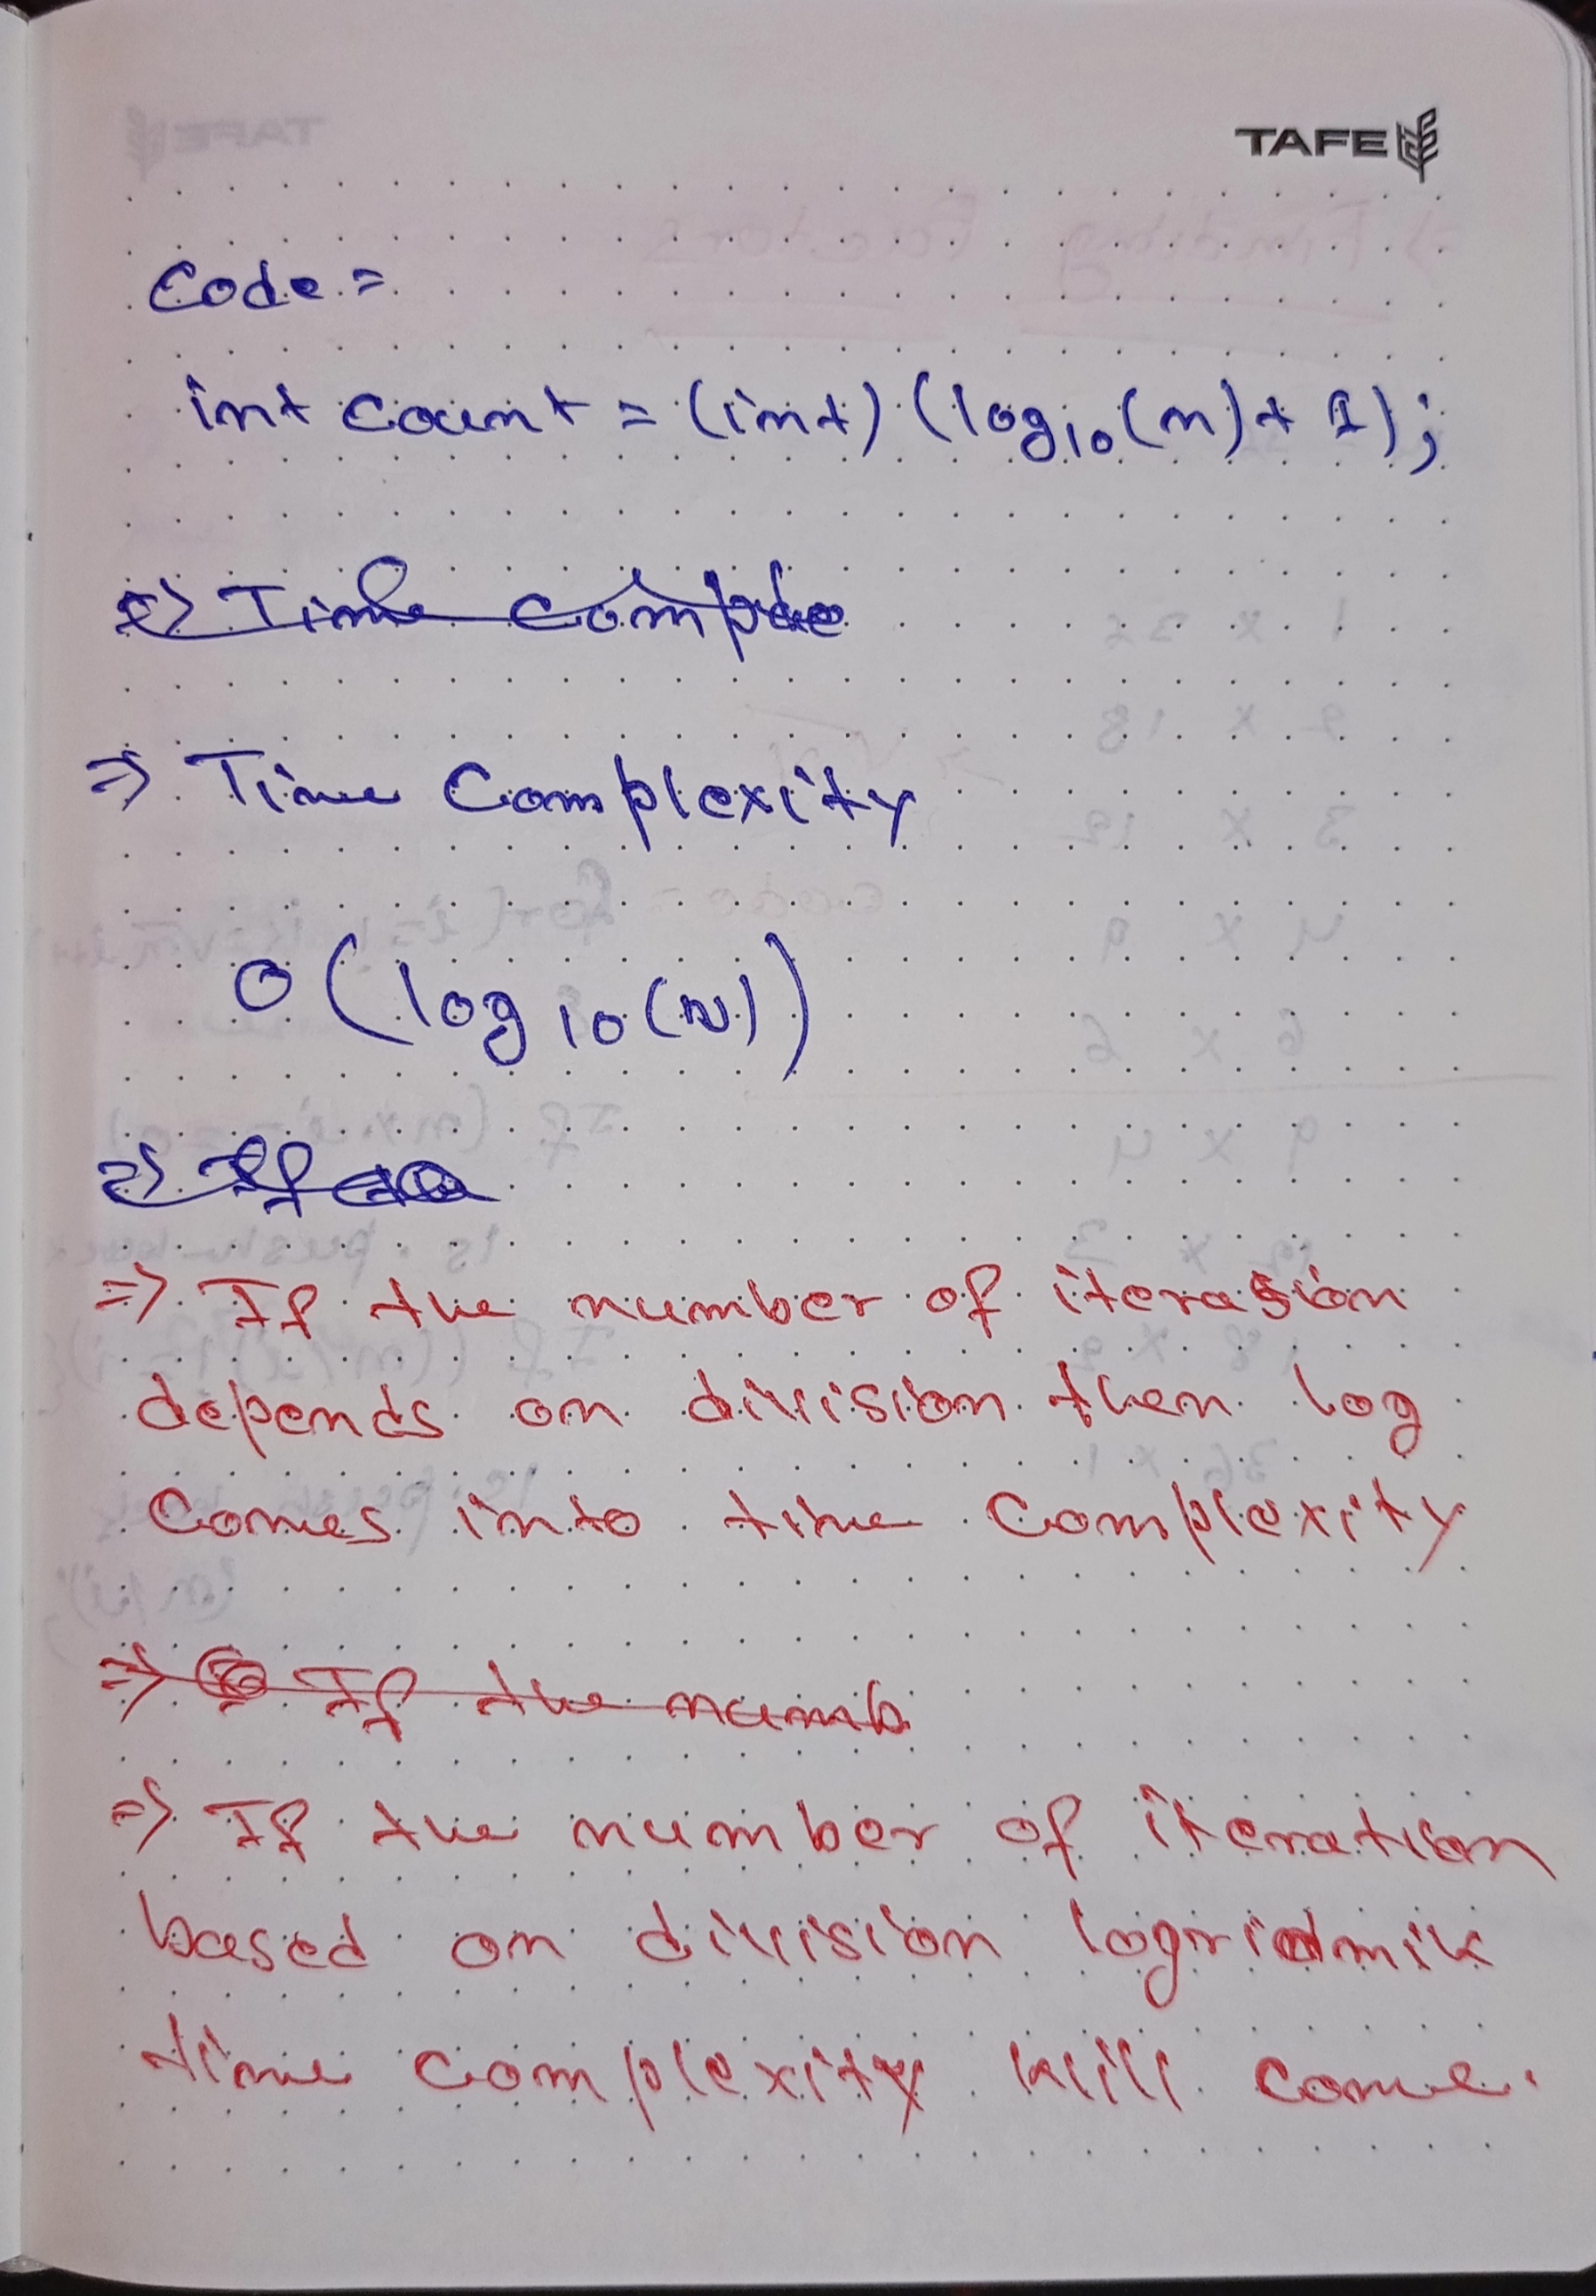 TAFE
Code =
int count = (int) (log10(n) + 1);
=> Time comple
=> Time Complexity
O (log10(N))
=> If
=> If the number of iterasion
depends on division then log
Comes into time Complexity
=> If the numb
=> If the number of iteration
based on division logridmik
time complexity will come.